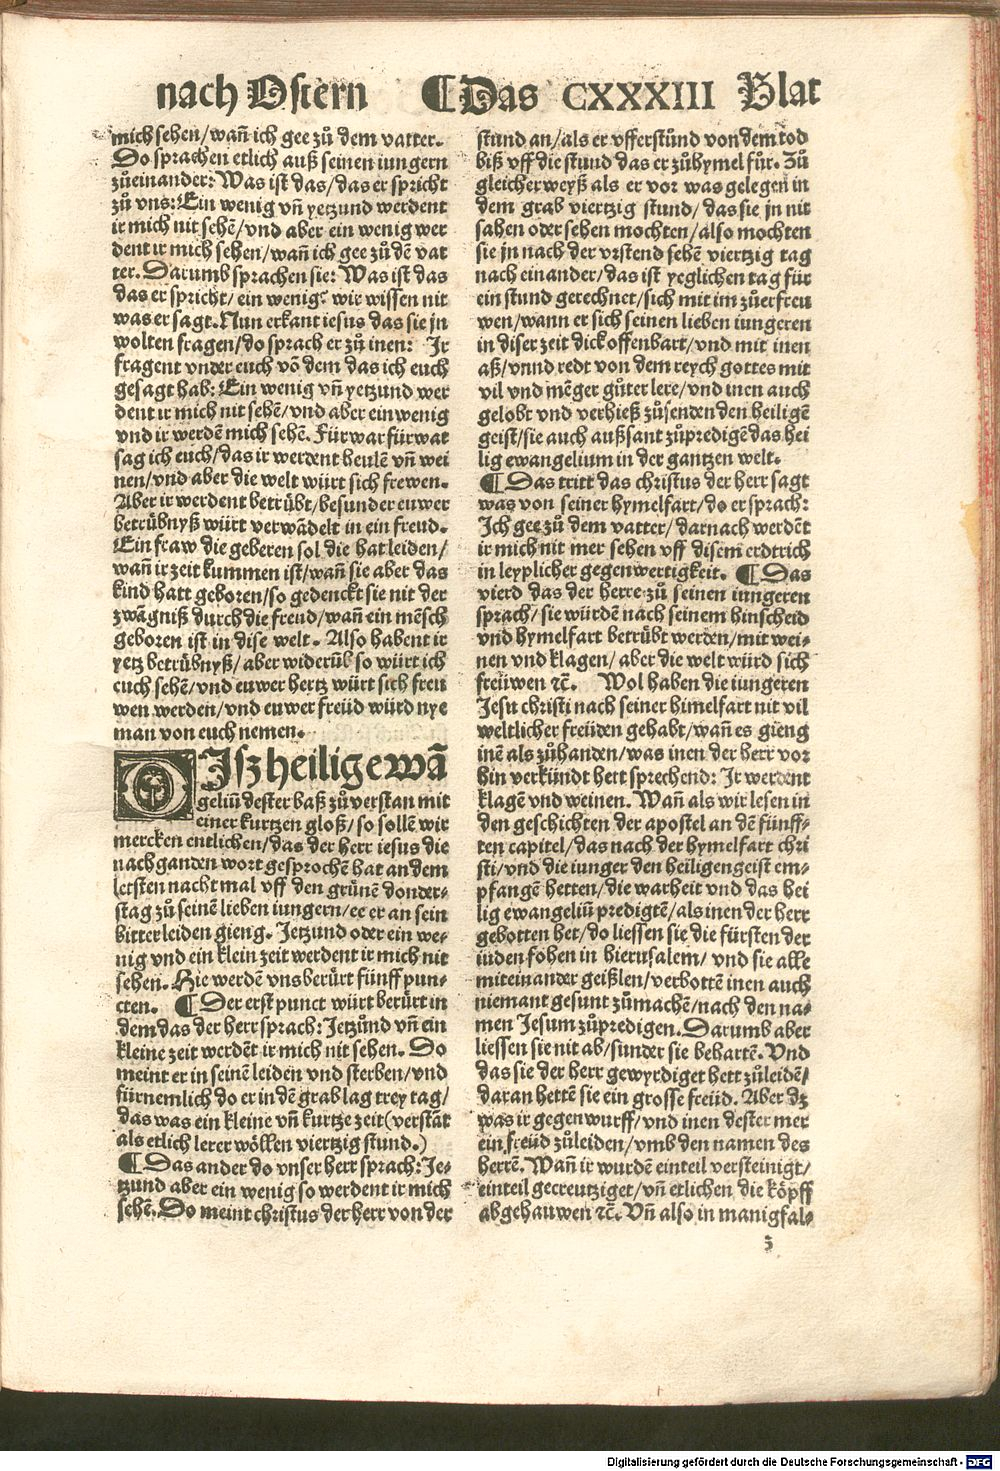 nach Ostern ⸿Das CXXXIII Blat
mich sehen/wañ ich gee zů dem vatter.
Do sprachen etlich auß seinen iungern
zůeinander: Was ist das/das er spricht
zů vns: Ein wenig vñ yetzund werdent
ir mich nit sehẽ/vnd aber ein wenig wer
dent ir mich sehen/wañ ich gee zů dẽ vat
ter. Darumb sprachen sie: Was ist das
das er spricht/ein wenig? wir wissen nit
was er sagt. Nun erkant iesus das sie jn
wolten fragen/do sprach er zů inen: Ir
fragent vnder euch võ dem das ich euch
gesagt hab: Ein wenig vñ yetzund wer
dent ir mich nit sehẽ/vnd aber ein wenig
vnd ir werdẽ mich sehẽ. Fürwar fürwar
sag ich euch/das ir werdent heulẽ vñ wei
nen/vnd aber die welt würt sich frewen.
Aber ir werdent betrübt/besunder euwer
betrübnyß würt verwãdelt in ein freud.
Ein fraw die geberen sol die hat leiden/
wañ ir zeit kummen ist/wañ sie aber das
kind hatt geboren/so gedenckt sie nit der
zwãgniß durch die freud/wañ ein mẽsch
geboren ist in dise welt. Also habent ir
yetz betrübnyß/aber widerũb so würt ich
euch sehẽ/vnd euwer hertz würt sich freu
wen werden/vnd euwer freüd würd nye
man von euch nemen.
DIsz heilig ewã
geliũ dester baß zů verstan mit
einer kurtzen gloß/so sollẽ wir
mercken entlichen/das der herr iesus die
nachganden wort gesprochẽ hat an dem
letsten nacht mal vff den grünẽ donder⸗
stag zů seinẽ lieben iungern/ee er an sein
bitter leiden gieng. Jetzund oder ein we⸗
nig vnd ein klein zeit werdent ir mich nit
sehen. Hie werdẽ vns berürt fünff pun⸗
cten. ⸿ Der erst punct würt berürt in
dem das der herr sprach: Jetzůnd vñ ein
kleine zeit werdẽt ir mich nit sehen. Do
meint er in seinẽ leiden vnd sterben/vnd
fürnemlich do er in dẽ grab lag trey tag/
das was ein kleine vñ kurtze zeit (verstãt
als etlich lerer wöllen viertzig stund.)
⸿ Das ander do vnser herr sprach: Je⸗
tzund aber ein wenig so werdent ir mich
sehẽ. Do meint christus der herr von der
stund an/als er vfferstůnd von dem tod
biß vff die stund das er zů hymel fůr. Zů
gleicher weyß als er vor was gelegen in
dem grab viertzig stund/das sie jn nit
sahen oder sehen mochten/also mochten
sie jn nach der vrstend sehẽ viertzig tag
nach einander/das ist yeglichen tag für
ein stund gerechnet/sich mit im zů erfreu
wen/wann er sich seinen lieben iungeren
in diser zeit dick offenbart/vnd mit inen
aß/vnnd redt von dem reych gottes mit
vil vnd mẽger gůter lere/vnd inen auch
gelobt vnd verhieß zů senden den heiligẽ
geist/sie auch außsant zů predigẽ das hei
lig ewangelium in der gantzen welt.
⸿ Das tritt das christus der herr sagt
was von seiner hymelfart/do er sprach:
Ich gee zů dem vatter/darnach werdẽt
ir mich nit mer sehen vff disem erdtrich
in leyplicher gegenwertigkeit. ⸿ Das
vierd das der herre zů seinen iungeren
sprach/sie würden nach seinem hinscheid
vnd hymelfart betrübt werden/mit wei⸗
nen vnd klagen/aber die welt würd sich
freüwen ꝛc. Wol haben die iungeren
Jesu christi nach seiner himelfart nit vil
weltlicher freüden gehabt/wañ es gieng
inẽ als zů handen/was inen der herr vor
hin verkündt hett sprechend: Ir werdent
klagẽ vnd weinen. Wañ als wir lesen in
den geschichten der apostel an dẽ fünff⸗
ten capitel/das nach der hymelfart chri
sti/vnd die iunger den heiligen geist em⸗
pfangẽ hetten/die warheit vnd das hei
lig ewangeliũ predigtẽ/als inen der herr
gebotten het/do liessen sie die fürsten der
iuden fohen in hierusalem/vnd sie alle
miteinander geißlen/verbottẽ inen auch
niemant gesunt zů machẽ/nach den na⸗
men Jesum zů predigen. Darumb aber
liessen sie nit ab/sunder sie behartẽ. Vnd
das sie der herr gewyrdiget hett zů leidẽ/
daran hettẽ sie ein grosse freüd. Aber dz
was ir gegenwurff/vnd inen dester mer
ein freüd zů leiden/vmb den namen des
herrẽ. Wañ ir wurdẽ einteil versteinigt/
einteil gecreutziget/vñ etlichen die köpff
abgehauwen ꝛc. Vñ also in manigfal⸗
Digitalisierung gefördert durch die Deutsche Forschungsgemeinschaft - DFG